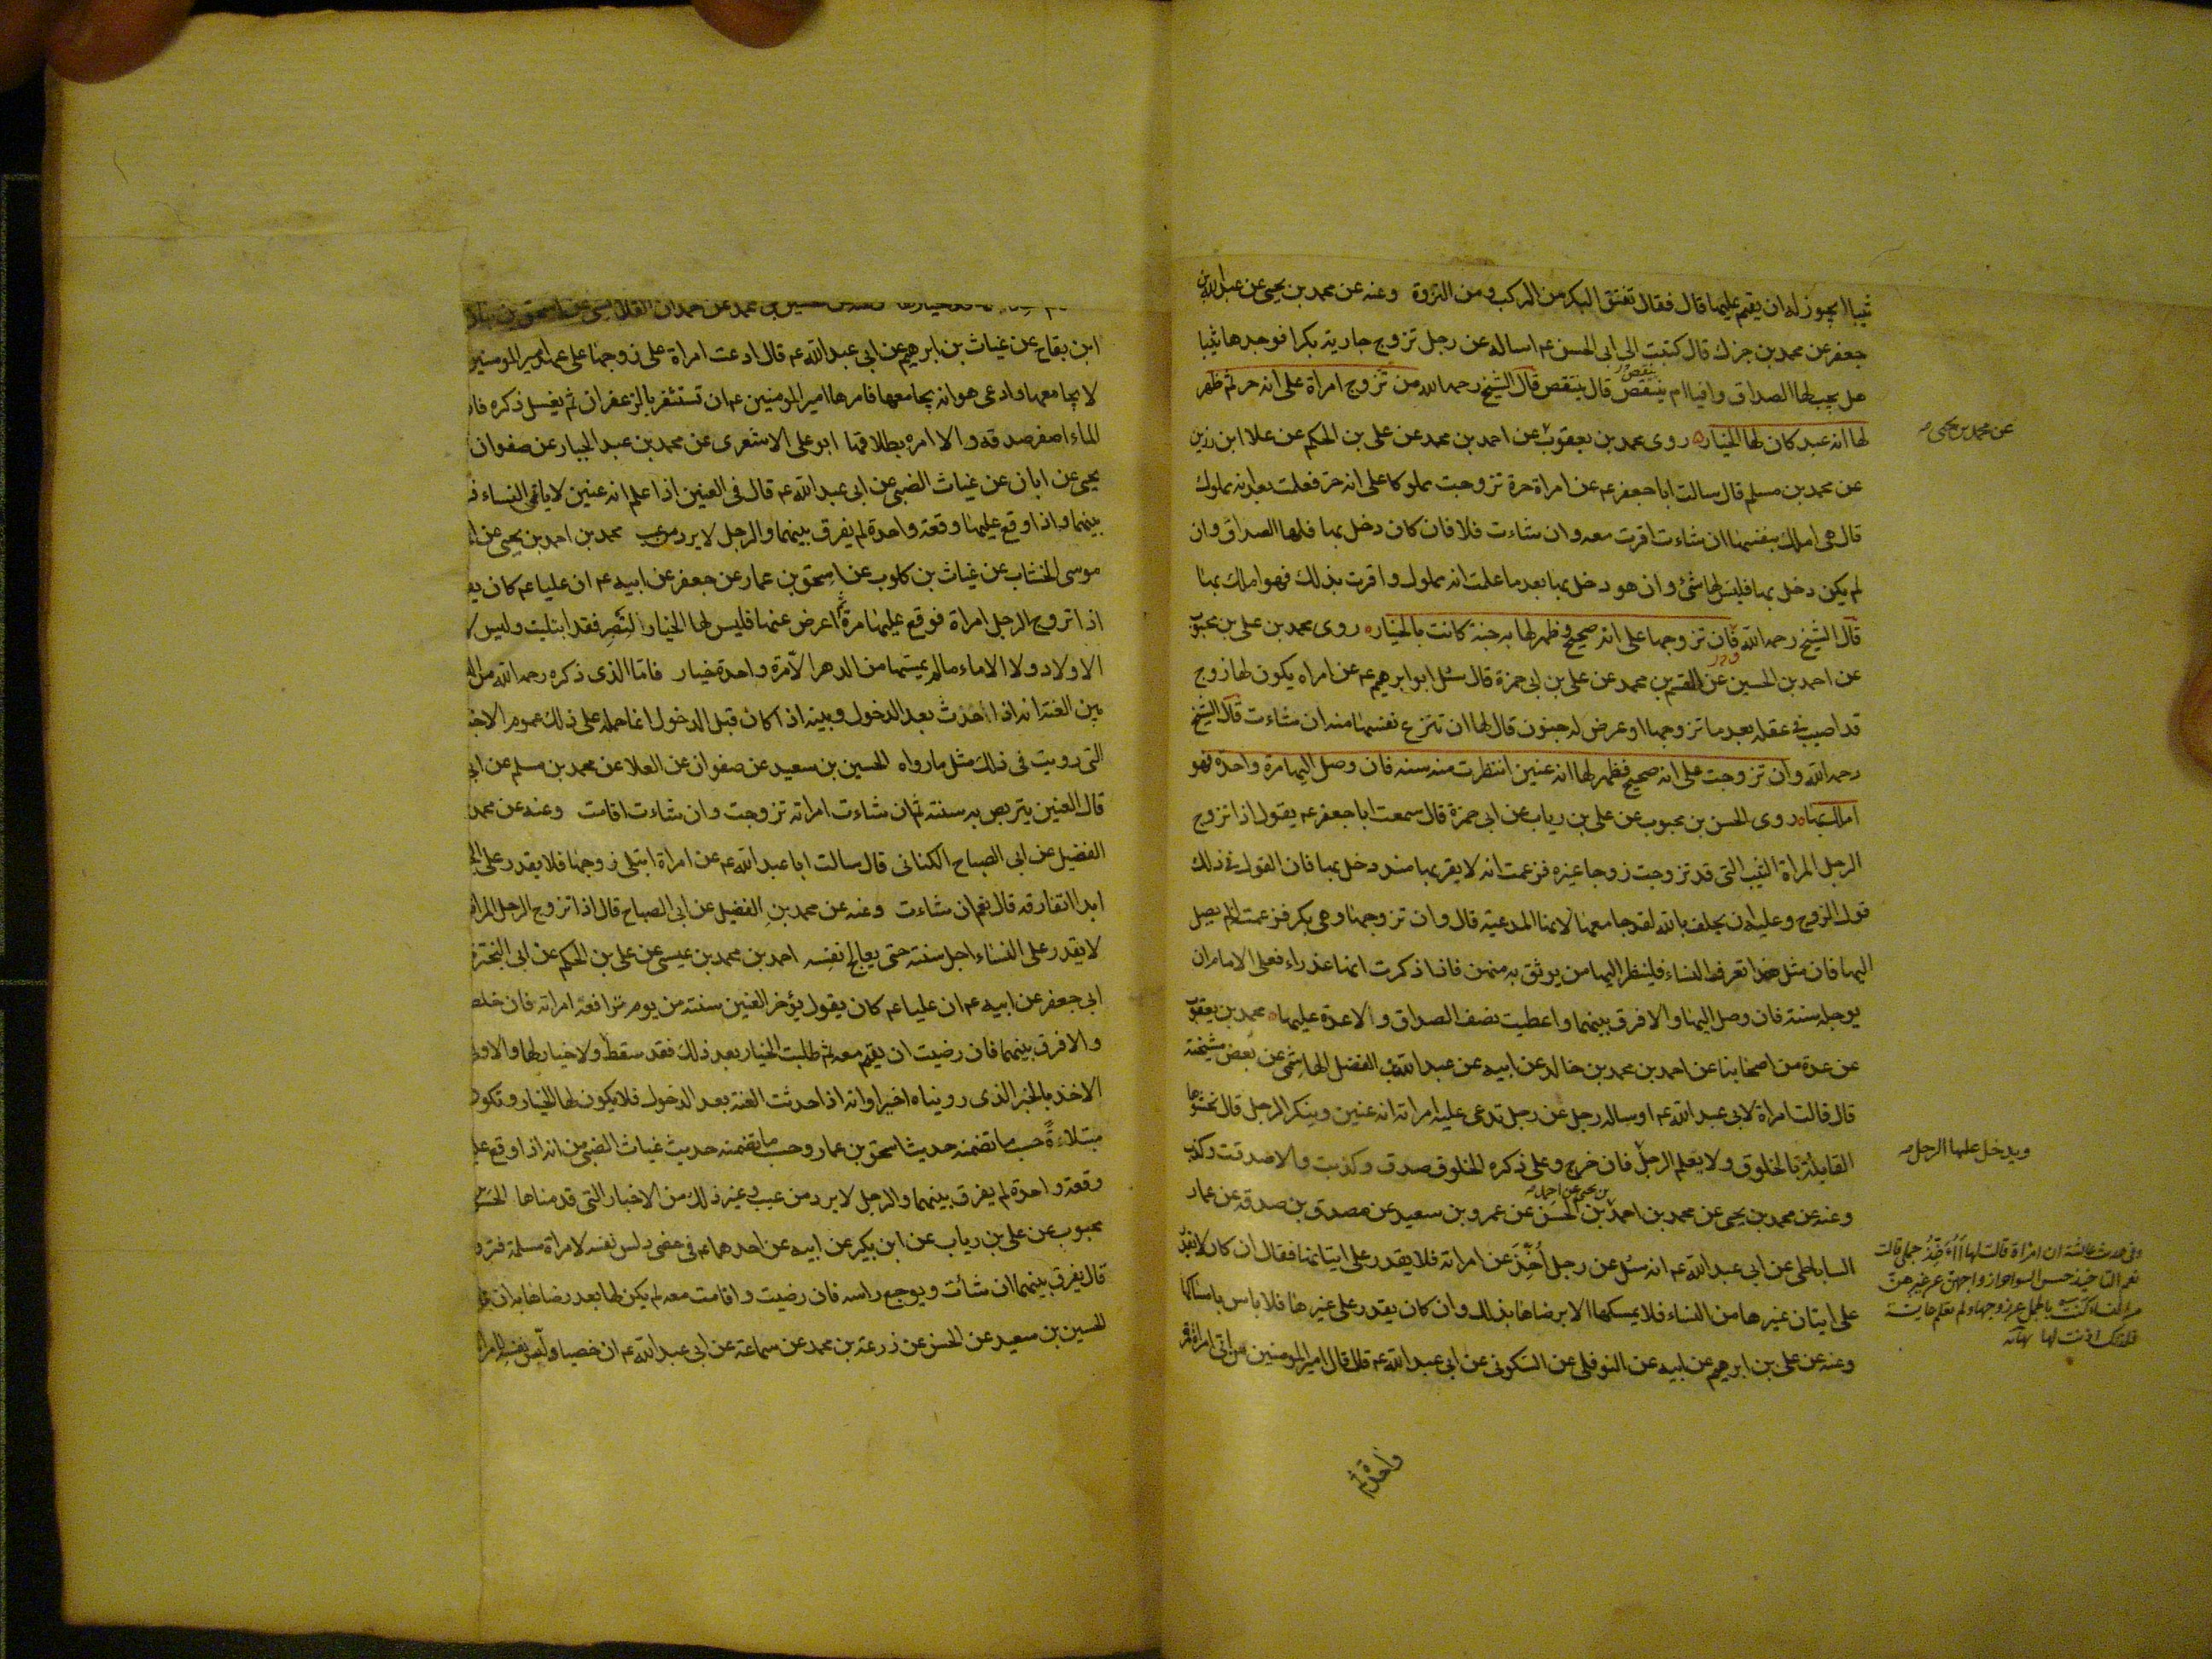 ثيبا ايجوز له ان يقيم عليها قال فقال تفتق البكر من المركب ومن النزوة وعنه عن محمد بن يحيى عن عبد الله بن
جعفر عن محمد بن جزك قال كتبت الى ابى الحسن عم اساله عن رجل تزوج جارية بكرا فوجدها ثيبا
هل يجب لها الصداق وافيا ام ينتقص قال ينتقص قال الشيخ رحمه الله من تزوج امراة على انه حر ثم ظهر
لها انه عبد كان لها الخيار روى محمد بن يعقوب عن احمد بن محمد عن على بن الحكم عن علا ابن رزين
عن محمد بن يحيى
عن محمد بن مسلم قال سالت ابا جعفر عم عن امراة حرة تزوجت مملوكا على انه حر فعلمت بعد انه مملوك
قال هى املك بنفسها ان شاءت اقرت معه وان شاءت فلا فان كان دخل بها فلها الصداق وان
لم يكن دخل بها فليس لها شئ وان هو دخل بها بعد ما علمت انه مملوك واقرت بذلك فهو املك بها
قال الشيخ رحمه الله فان تزوجها على انه صحيح فظهر لها به جنة كانت بالخيار روى محمد بن على بن محبوب
عن احمد بن الحسين عن القسم بن محمد عن على بن ابى حمزة قال سئل ابو ابرهيم عم عن امراه يكون لها زوج
قد اصيب فى عقله بعد ما تزوجها او عرض له جنون قال لها ان تنزع نفسها منه ان شاءت قال الشيخ
رحمه الله وان تزوجت على انه صحيح فظهر لها انه عنين انتظرت منه سنه فان وصل اليها مرة واحدة فهو
املك بها روى الحسن بن محبوب عن على بن رياب عن ابى حمزة قال سمعت ابا جعفر عم يقول اذا تزوج
الرجل المراة الثيب التى قد تزوجت زوجا غيره فزعمت انه لا يقربها منذ دخل بها فان القول فى ذلك
قول الزوج وعليه ان يحلف بالله لقد جامعها لانها المدعية قال وان تزوجها وهى بكر فزعمت انه لم يصل
اليها فان مثل هذا تعرفه النساء فلينظر اليها من يوثق به منهن فاذا ذكرت انها عذراء فعلى الامام ان
يوجله سنة فان وصل اليها والا فرق بينهما واعطيت نصف الصداق ولا عدة عليها محمد بن يعقوب
عن عدة من اصحابنا عن احمد بن محمد بن خالد عن ابيه عن عبد الله بن الفضل الهاشمى عن بعض مشيخته
قال قالت امراة لابى عبد الله عم او ساله رجل عن رجل تدعى عليه امراته انه عنين وينكر الرجل قال تحشوها
القابلة بالخلوق ولا يعلم الرجل فان خرج وعلى ذكره الخلوق صدق وكذبت والا صدقت وكذب
ويدخل عليها الرجل
بن يحيى عن احمد
وعنه عن محمد بن يحيى عن محمد بن احمد بن الحسن عن عمرو بن سعيد عن مصدق بن صدقه عن عمار
الساباطى عن ابى عبد الله عم انه سئل عن رجل اخذ عن امراته فلا يقدر على اتيانها فقال ان كان لا يقدر
على اتيان غيرها من النساء فلا يمسكها الا برضاها بذلك وان كان يقدر على غيرها فلا باس بامساكها
وعنه عن على بن ابرهيم عن ابيه عن النوفلى عن السكونى عن ابى عبد الله عم قال قال امير المومنين من اتى امراة مرة
وفى حديث عائشة ان امراة قالت لها أأؤخذ جملى قالت
نعم التاخيذ حبس السواحر ازواجهن عن غيرهن
من النساء كنت بالجمل عن زوجها ولم تعلم عائشة
فلذلك اذنت لها نهاية
واحدة ثم
ابن بقاح عن غياث بن ابرهيم عن ابى عبد الله عم قال ادعت امراة على زوجها على عهد امير المومنين
لا يجامعها وادعى هو انه يجامعها فامرها امير المومنين عم ان تستثفر بالزعفران ثم يغسل ذكره فان
الماء اصفر صدقه والا امره بطلاقها ابو على الاشعرى عن محمد بن عبد الجبار عن صفوان
يحيى عن ابان عن غياث الضبى عن ابى عبد الله عم قال فى العنين اذا علم انه عنين لا ياتى النساء
بينهما واذا وقع عليها وقعة واحدة لم يفرق بينهما والرجل لا يرد من عيب محمد بن احمد بن يحيى عن
موسى الخشاب عن غياث بن كلوب عن اسحق بن عمار عن جعفر عن ابيه عم ان عليا عم كان
اذا تزوج الرجل امراة فوقع عليها مرة ثم اعرض عنها فليس لها الخيار لتصبر فقد ابتليت وليس
الاولاد ولا الاماء ما لم يمسها من الدهر الا مرة واحدة خيار فاما الذى ذكره رحمه الله من
بين العنة انه اذا احدث بعد الدخول وبينه اذا كان قبل الدخول انما حمله على ذلك عموم
التى رويت فى ذلك مثل ما رواه الحسين بن سعيد عن صفوان عن العلا عن محمد بن مسلم عن
قال العنين يتربص به سنة ثم ان شاءت امراته تزوجت وان شاءت اقامت وعنه عن محمد
الفضيل عن ابى الصباح الكنانى قال سالت ابا عبد الله عم عن امراة ابتلى زوجها فلا يقدر على
ابدا اتفارقه قال نعم ان شاءت وعنه عن محمد بن الفضيل عن ابى الصباح قال اذا تزوج الرجل المراة
لا يقدر على النساء اجل سنة حتى يعالج نفسه احمد بن محمد بن عيسى عن على بن الحكم عن ابى البخترى
ابى جعفر عن ابيه عم ان عليا عم كان يقول يؤخر العنين سنة من يوم ترافعه امراته فان خلص
والا فرق بينهما فان رضيت ان يقيم معه ثم طلبت الخيار بعد ذلك فقد سقط ولا خيار لها والاولى
الاخذ بالخبر الذى رويناه اخيرا وانه اذا حدثت العنة بعد الدخول فلا يكون لها الخيار وتكون
مبتلاة حسب ما تضمنه حديث اسحق بن عمار وحسب ما تضمنه حديث غياث الضبى من انه اذا وقع
وقعة واحدة لم يفرق بينهما والرجل لا يرد من عيب وغير ذلك من الاخبار التى قدمناها الحسن
محبوب عن على بن رياب عن ابن بكير عن ابيه عن احدهما عم فى خصى دلس نفسه لامراة مسلمة
قال يفرق بينهما ان شائت ويوجع راسه فان رضيت واقامت معه لم يكن لها بعد رضاها به ان
الحسين بن سعيد عن الحسن عن زرعة بن محمد عن سماعة عن ابى عبد الله عم ان خصيا دلس نفسه لامراة